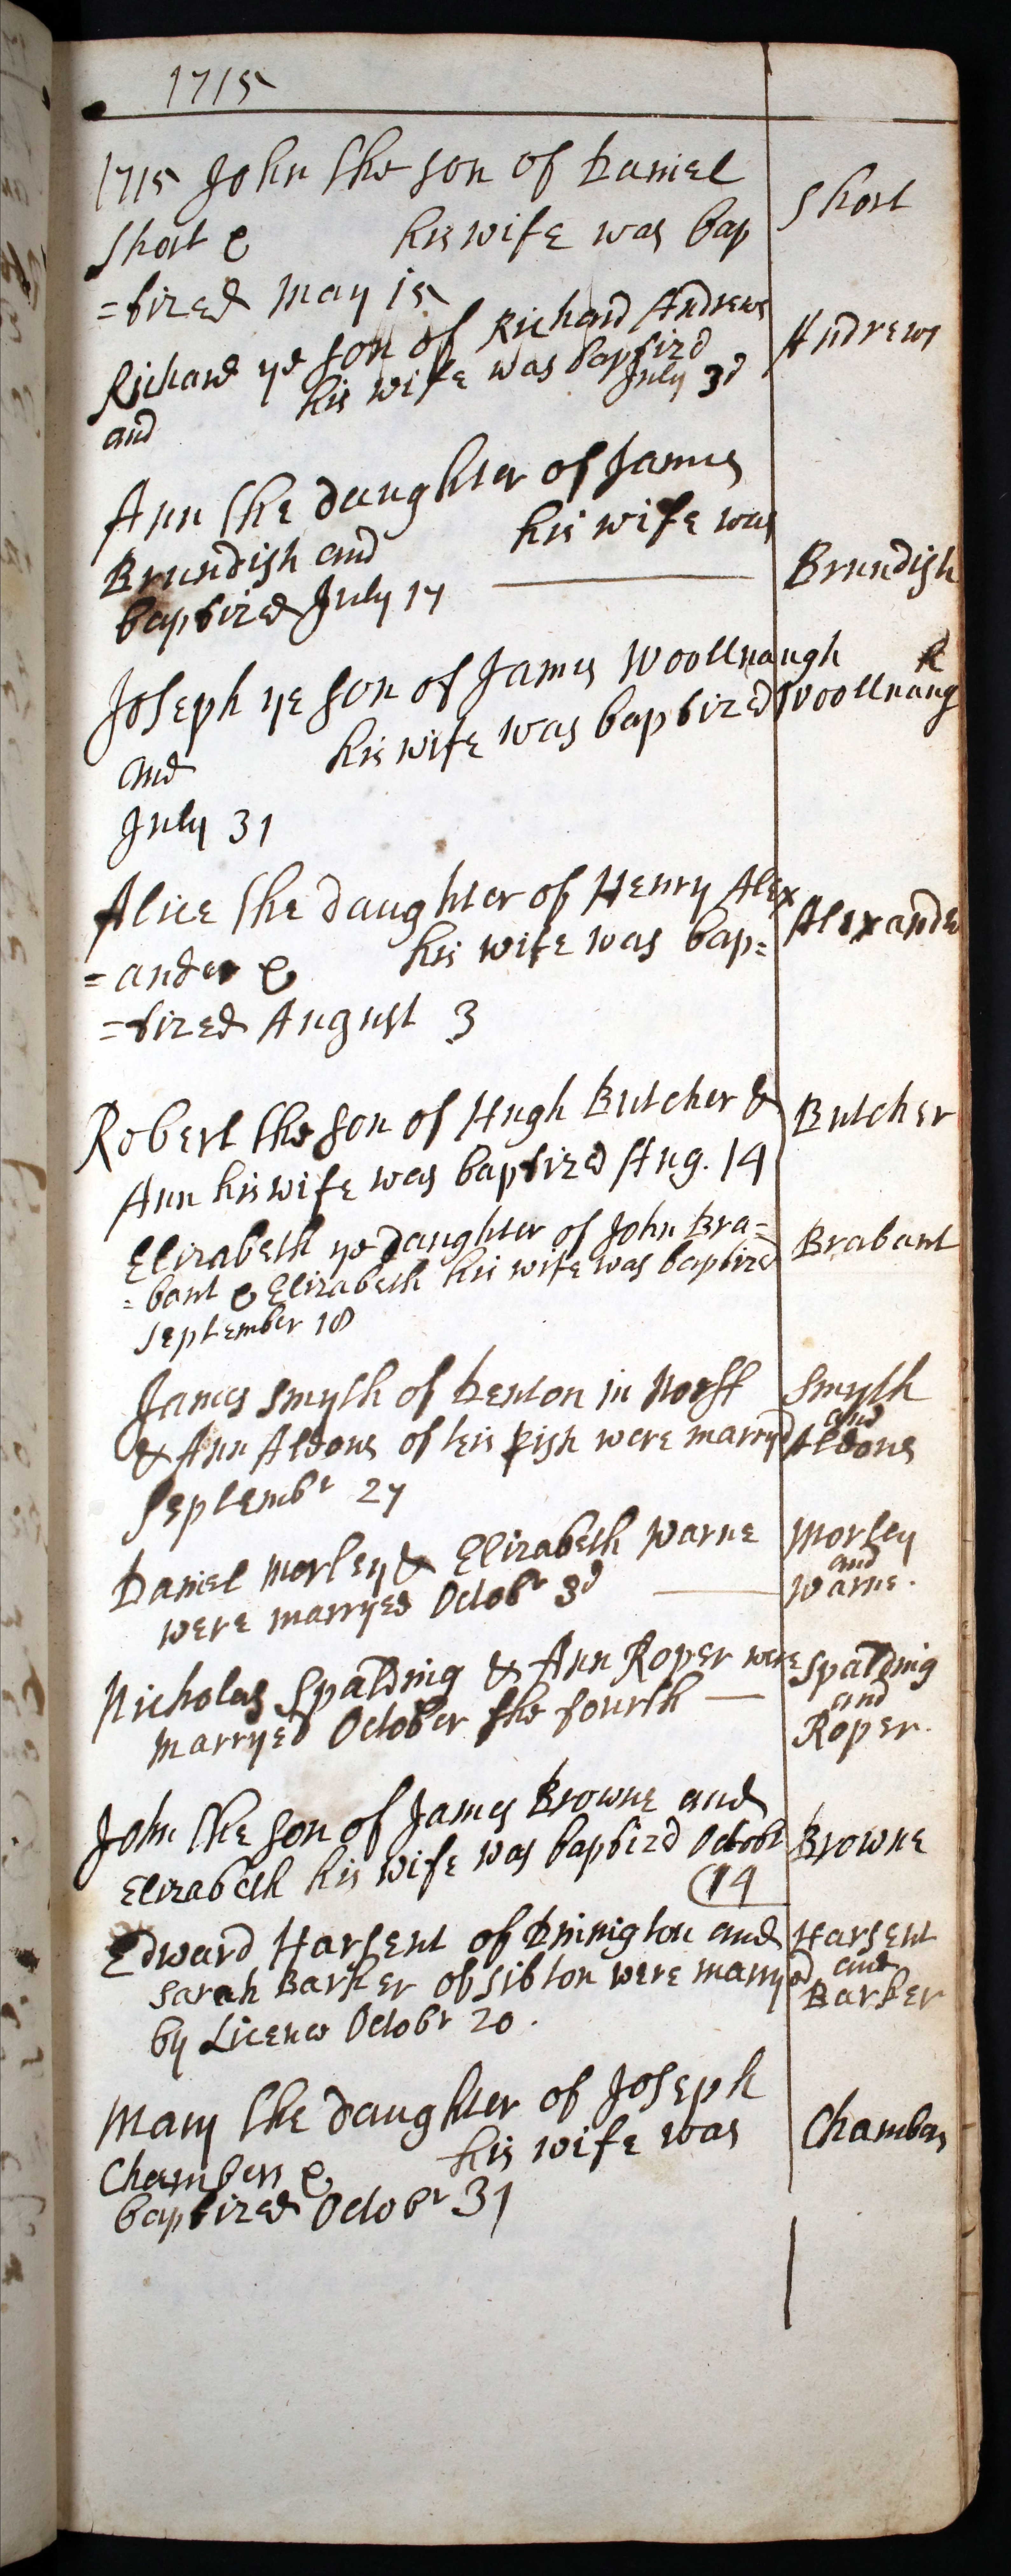 1715
1715 John the son of Daniel
Short & his wife was bap
=tized May 15
Short
Richard ye son of Richard Andrews
and his wife was baptizd
July 3d
Andrews
Ann the daughter of James
Brundish and his wife was
baptized July 17
Brundish
Joseph ye son of James Woollnaugh
and his wife was baptized
July 31
h
Woollnaug
Alice the daughter of Henry Alex
=ander & his wife was bap=
=tized August 3
Alexander
Robert the son of Hugh Butcher &
Ann his wife was baptized Aug. 14
Butcher
Elizabeth ye daughter of John Bra=
=bant & Elizabeth his wife was baptized
September 18
Brabant
James Smyth of Denton in Norff
& Ann Aldous of this pish were marryd
Septembr 27
Smyth
and
Aldous
Daniel Morley & Elizabeth Warne
were marryed Octobr 3d
Morley
and
Warne.
Nicholas Spalding & Ann Roper were
marryed October the fourth
Spalding
and
Roper.
John the son of James Browne and
Elizabeth his wife was baptizd Octobr
14
Browne
Edward Harsent of Dinington and
Sarah Barker of Sibton were marryed
by Licence Octobr 20.
Harsent
and
Barker
Mary the daughter of Joseph
Chambers & his wife was
baptized Octobr 31
Chambers